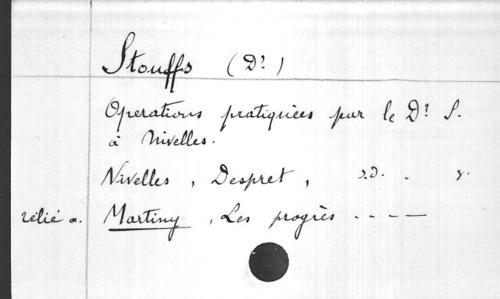 Stouffs (Dr)
Operations pratiquées par le Dr S.
à Nivelles.
Nivelles, Despret, s.d. 8.
relié a. Martiny, Les progrès ----